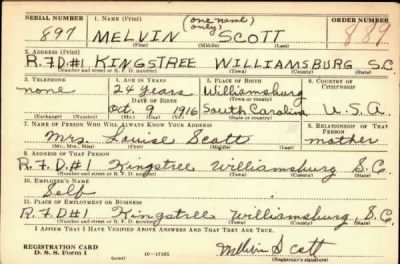 SERIAL NUMBER 1. NAME (Print) (one name) ORDER NUMBER
897 MELVIN (only) SCOTT 889
(First) (Middle) (Last)
2. ADDRESS (Print)
R.F.D#1 KINGSTREE WILLIAMSBURG S.C
(Number and street or R. F. D. number) (Town) (County) (State)
3. TELEPHONE 4. AGE IN YEARS 5. PLACE OF BIRTH 6. COUNTRY OF CITIZENSHIP
none 24 years Williamsburg
DATE OF BIRTH (Town or county)
Oct. 9 1916 South Carolina U.S.A.
(Exchange) (Number) (Mo.) (Day) (Yr.) (State or country)
7. NAME OF PERSON WHO WILL ALWAYS KNOW YOUR ADDRESS 8. RELATIONSHIP OF THAT PERSON
Mrs. Louise Scott mother
(Mr., Mrs., Miss) (First) (Middle) (Last)
9. ADDRESS OF THAT PERSON
R.F.D#1 Kingstree Williamsburg S.C.
(Number and street or R. F. D. number) (Town) (County) (State)
10. EMPLOYER'S NAME
Self
11. PLACE OF EMPLOYMENT OR BUSINESS
R.F.D#1 Kingstree Williamsburg, S.C.
(Number and street or R. F. D. number) (Town) (County) (State)
I AFFIRM THAT I HAVE VERIFIED ABOVE ANSWERS AND THAT THEY ARE TRUE.
REGISTRATION CARD
D. S. S. Form 1 (over) 16—17105 Melvin Scott
(Registrant's signature)